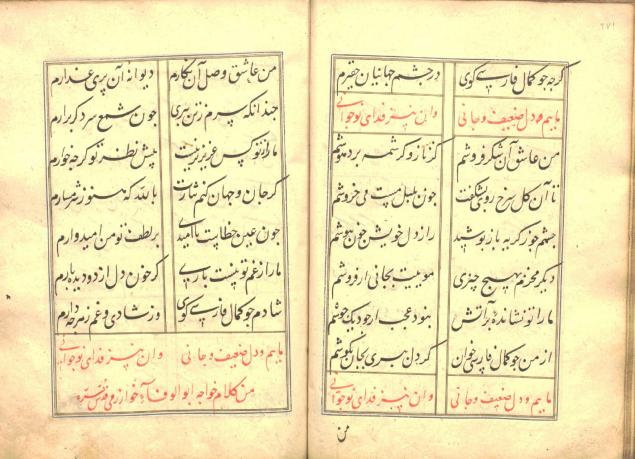 ۲۷۱
گرچه چو کمال فارسی گوی در چشم جهانیان حقیرم
ماییم و دل ضعیف و جانی وان نیز فدای نوجوانی
من عاشق آن شکر فروشم کز ناز و کرشمه برد هوشم
تا آن گل سرخ روی بشکفت چون بلبل مست می خروشم
چشمم چو ز گریه باز پوشید راز دل خویش چون بپوشم
دیگر نخرم بهیچ چیزی مویت بجانی ار فروشم
ما را تو نشانده بر آتش نبود عجب ار چو دیک جوشم
از من چو کمال فارسی خوان کر دل نبری بجان بکوشم
ماییم و دل ضعیف و جانی وان نیز فدای نوجوانی
من
من عاشق وصل آن نگارم دیوانه آن پری عذارم
چندانکه بسرم زنی تیری چون شمع سر دگر برارم
ما را تو کس عزیز تریت پیش نظر تو گرچه خوارم
گر جان و جهان کنم نثارت بالله که هنوز شرمسارم
چون عین خطاست ناامیدی بر لطف تو من امیدوارم
ما را ز غم تو نیست یاری گر خون دل از دو دیده بارم
شادم چو کمال فارسی گوی وز شادی و غم
ماییم و دل ضعیف و جانی وان نیز فدای نوجوانی
من کلام خواجه ابو الوفاء خوارزمی قدس سره